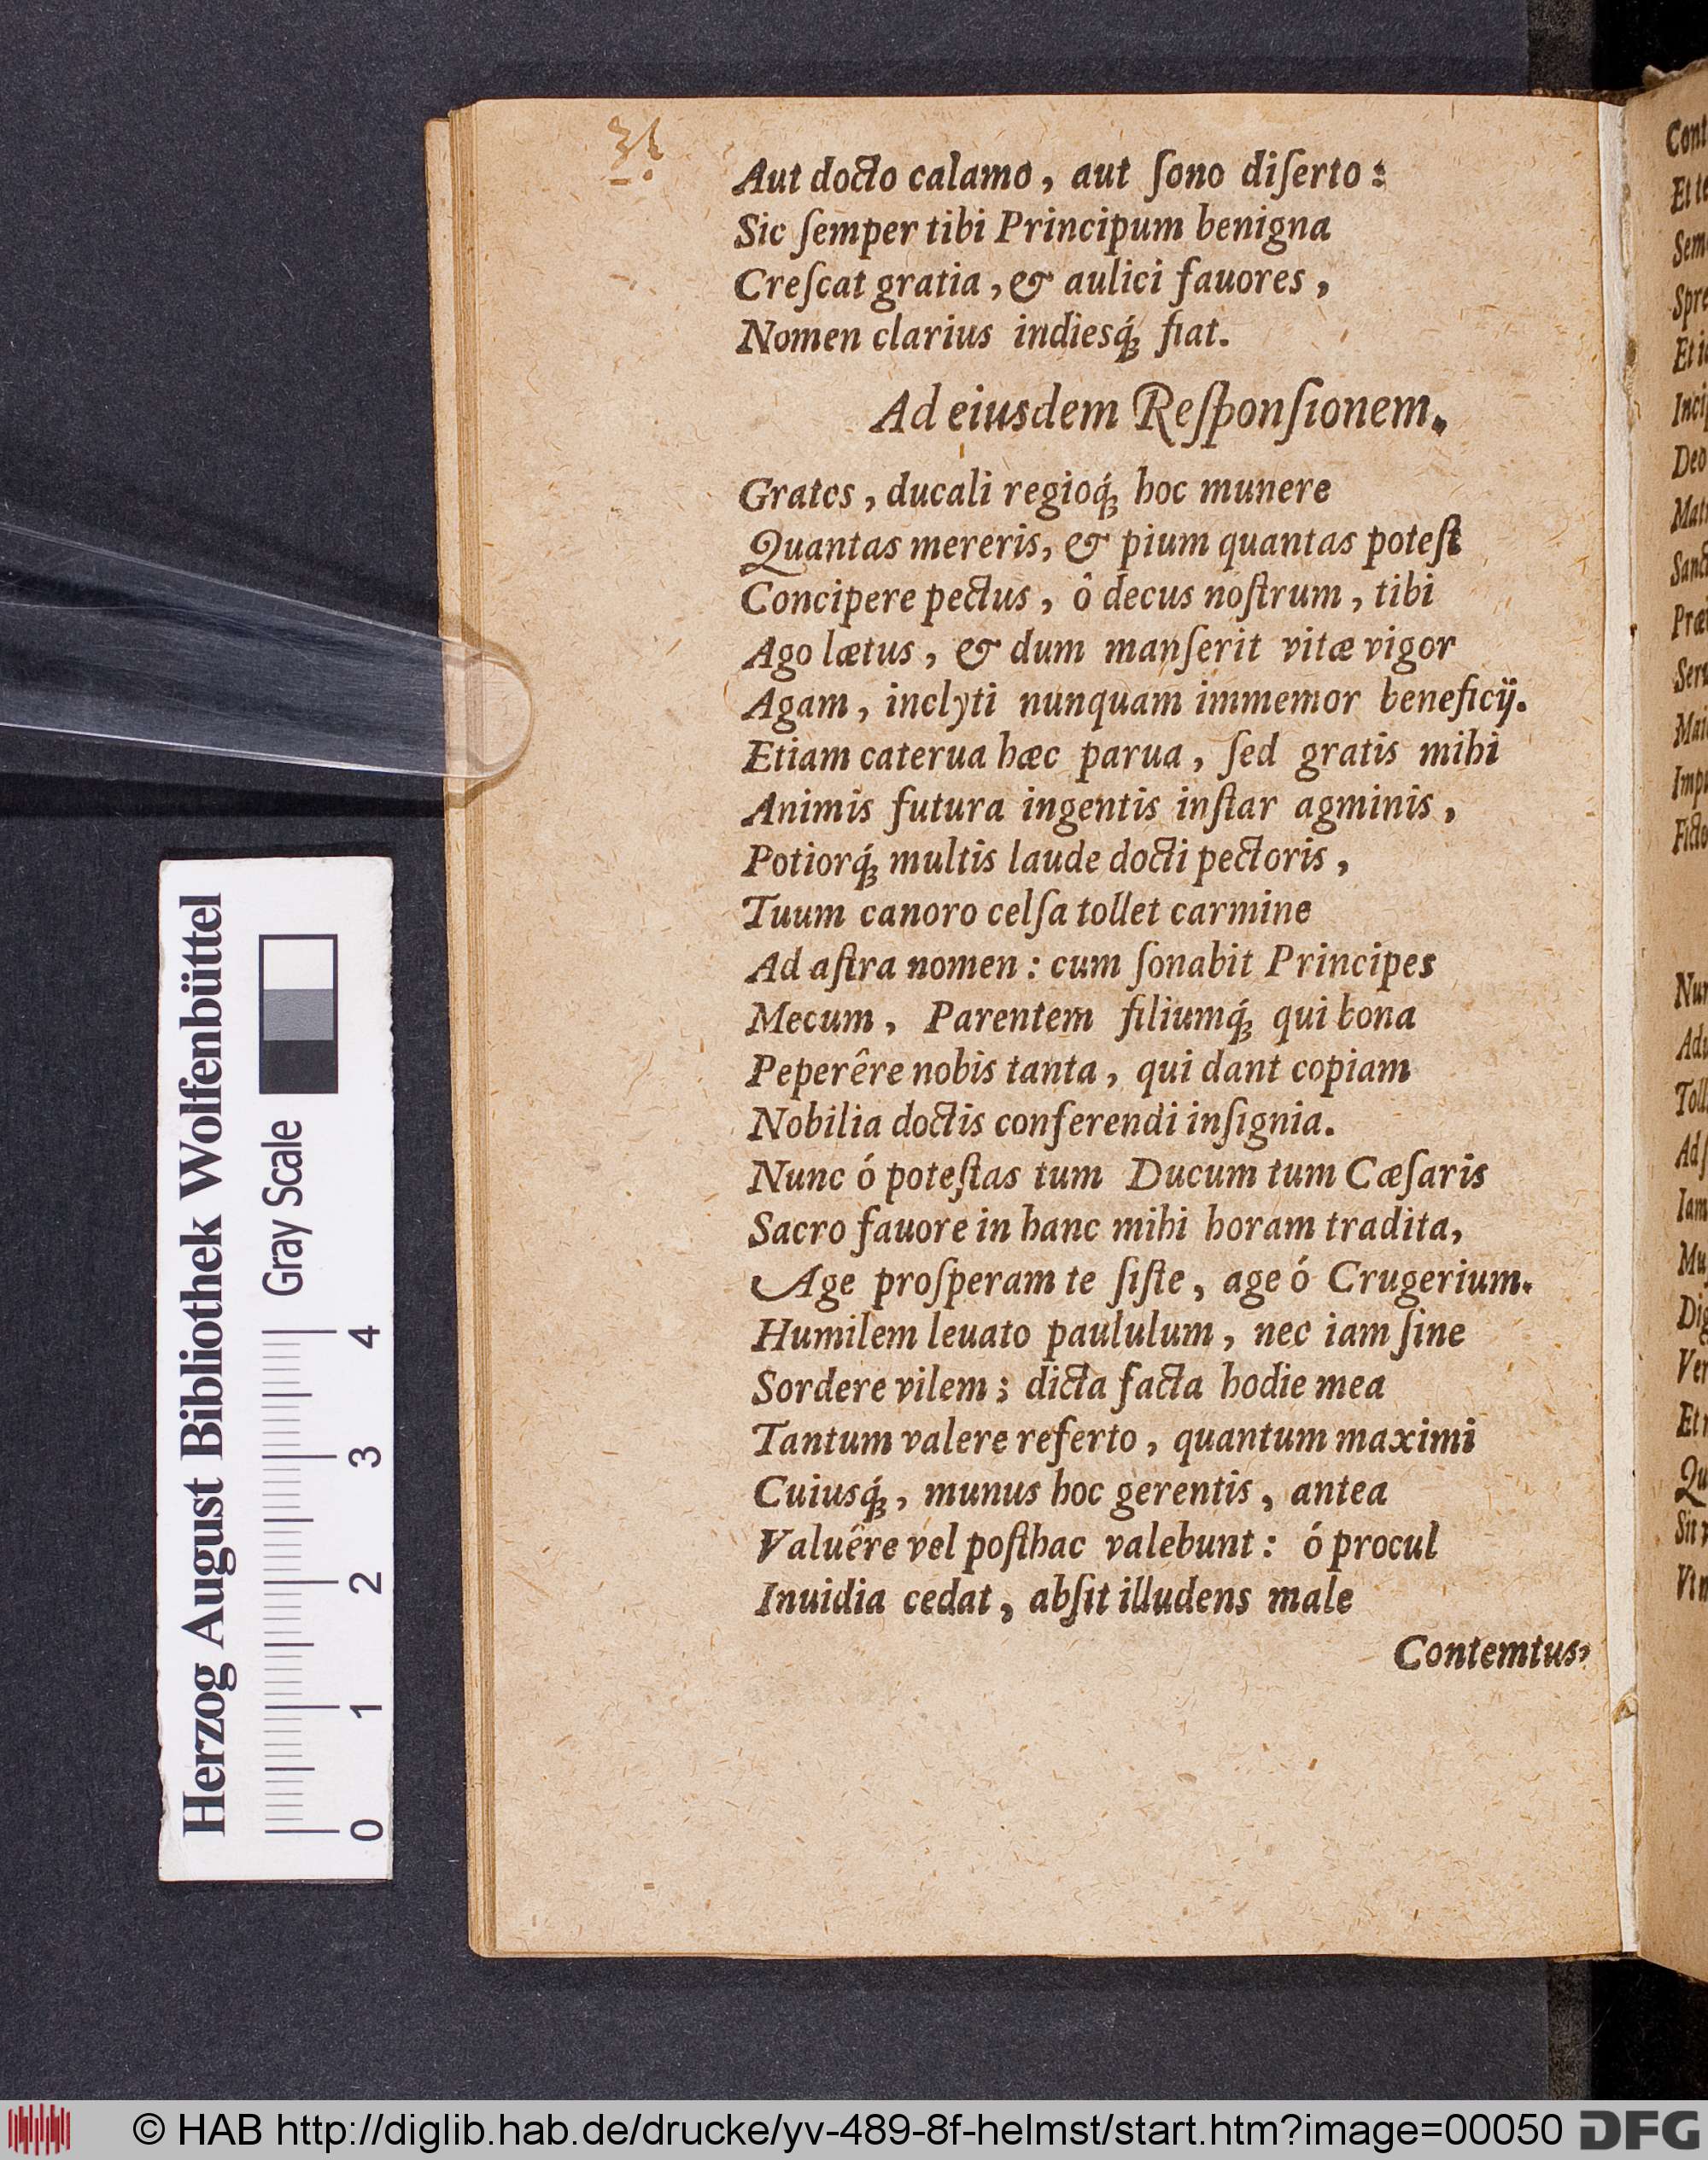 31.
Aut docto calamo, aut ſono diſerto:
Sic ſemper tibi Principum benigna
Creſcat gratia, & aulici fauores,
Nomen clarius indiesq́; fiat.
Ad eiusdem Reſponſionem.
Grates, ducali regioq́; hoc munere
Quantas mereris, & pium quantas poteſt
Concipere pectus, ô decus noſtrum, tibi
Ago lætus, & dum manſerit vitæ vigor
Agam, inclyti nunquam immemor beneficij.
Etiam caterua hæc parua, ſed gratis mihi
Animis futura ingentis inſtar agminis,
Potiorq́; multis laude docti pectoris,
Tuum canoro celſa tollet carmine
Ad aſtra nomen: cum ſonabit Principes
Mecum, Parentem filiumq́; qui bona
Peperêre nobis tanta, qui dant copiam
Nobilia doctis conferendi inſignia.
Nunc ó poteſtas tum Ducum tum Cæſaris
Sacro fauore in hanc mihi horam tradita,
Age proſperam te ſiſte, age ó Crugerium.
Humilem leuato paululum, nec iam ſine
Sordere vilem; dicta facta hodie mea
Tantum valere referto, quantum maximi
Cuiusq́;, munus hoc gerentis, antea
Valuére vel poſthac valebunt: ó procul
Inuidia cedat, abſit illudens male
Contemtus,
Cont
Sem
Spre
Deo
Nun
Iam
Herzog August Bibliothek Wolfenbüttel
Gray Scale
0 1 2 3 4
© HAB http://diglib.hab.de/drucke/yv-489-8f-helmst/start.htm?image=00050
DFG